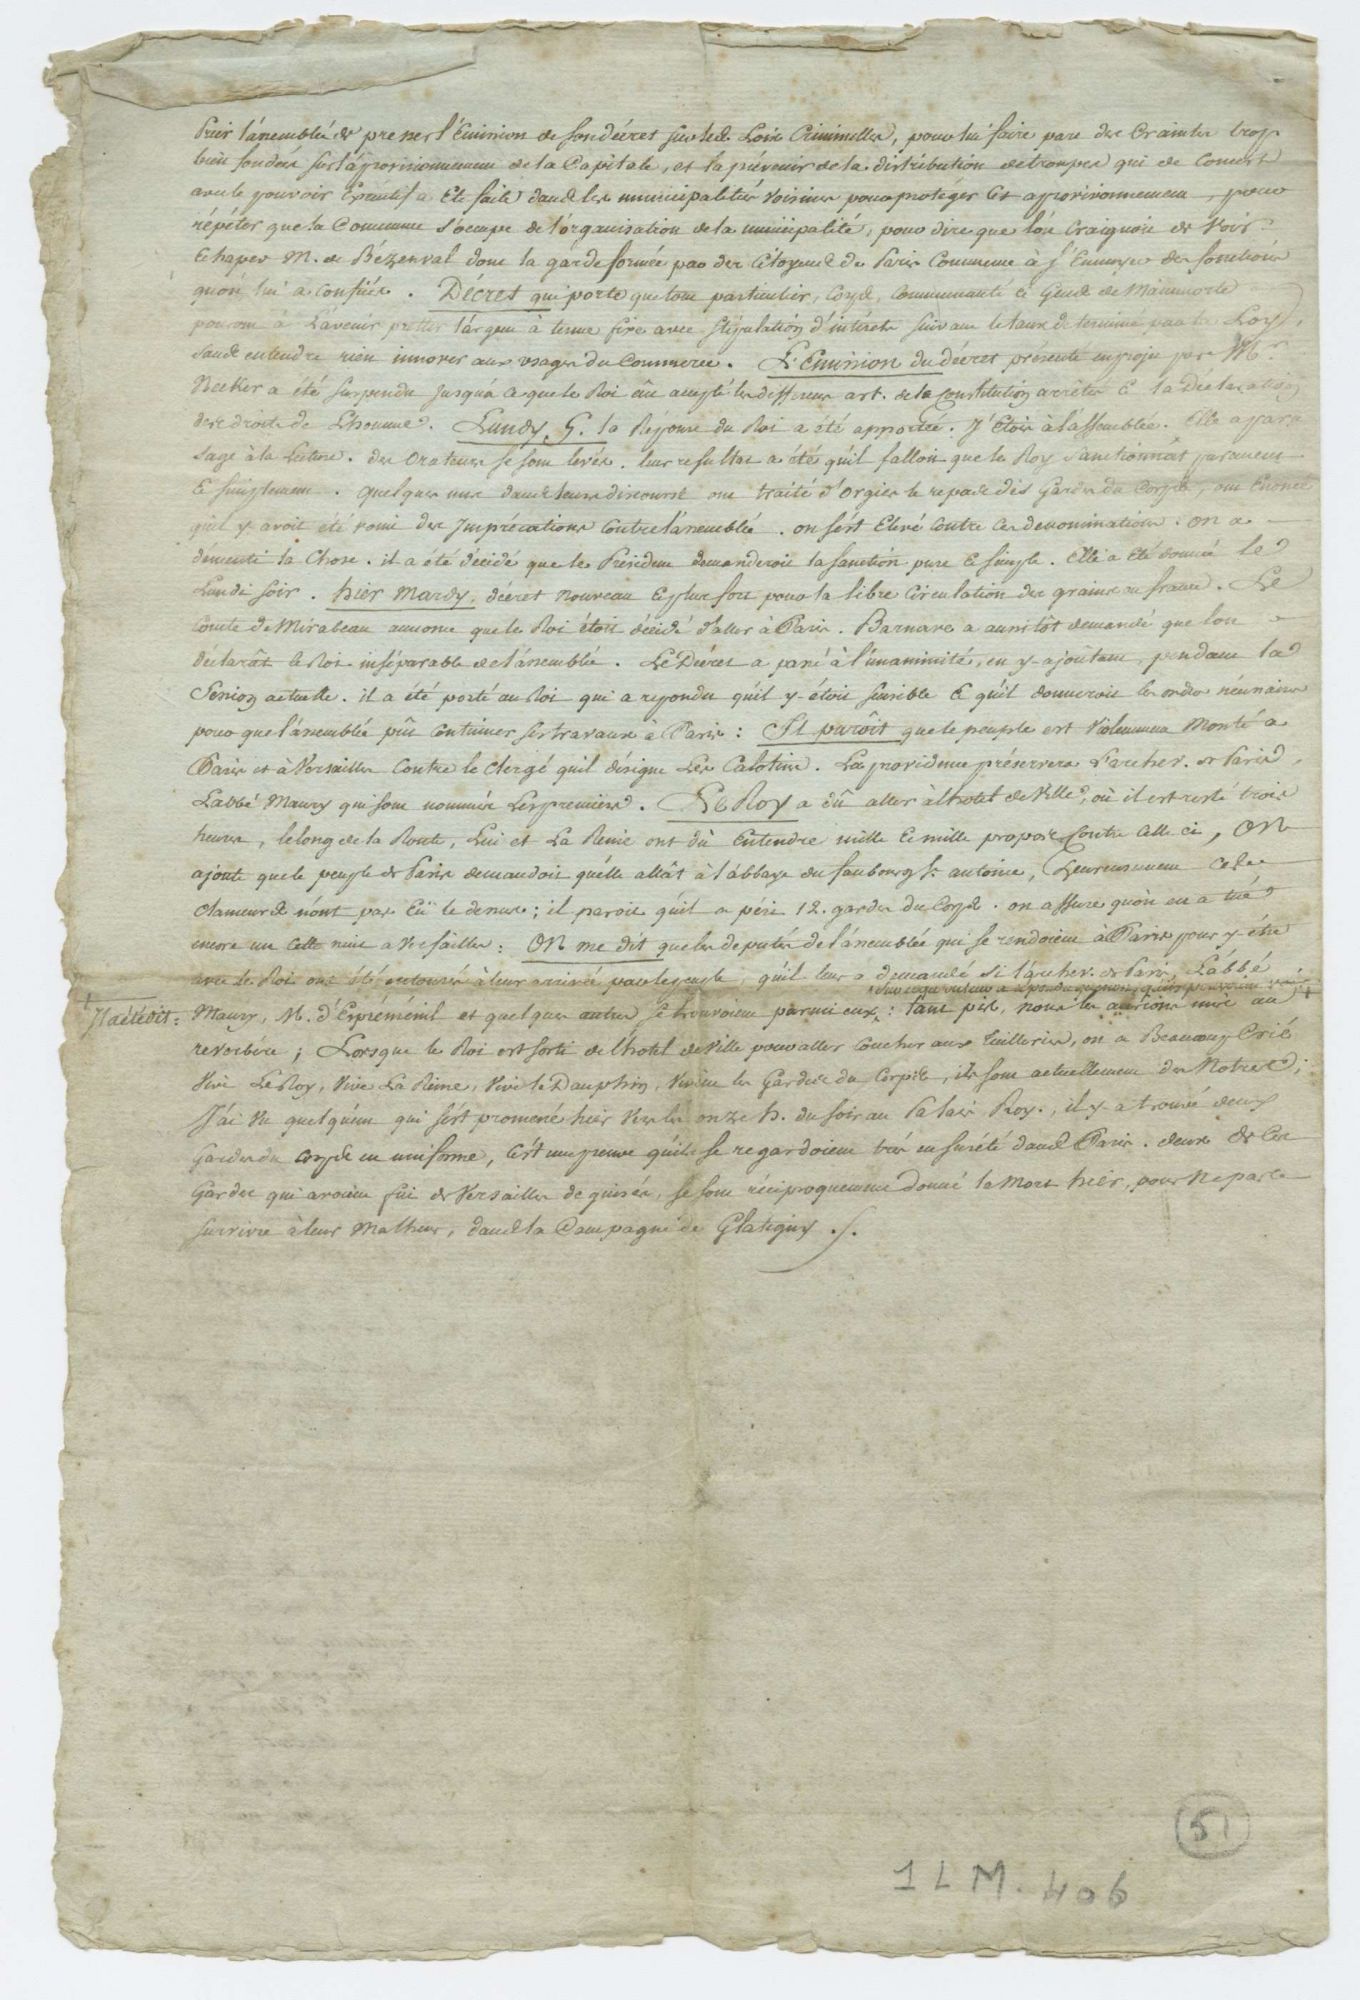 Prier l'assemblée de presser l'Emission de son décret sur les Loix Criminelles, pour lui faire part des Craintes trop
bien fondées sur l'approvisionnement de la Capitale, et la prévenir de la distribution de troupes qui de Concert
avec le pouvoir Executif a Eté faite dans les municipalités voisines pour protéger Cet approvisionnement, pour
répéter que la Commune s'occupe de l'organisation de la municipalité, pour dire que l'on Craignoit de Voir
Echaper M. de Bézenval dont la garde formée par des Citoyens de Paris Commence à s'Ennuyer des fonctions
qu'on lui a confiées. Décret qui porte que tout particulier, Corps, Communauté et Gens de Mainmorte
pourront à l'avenir prêter l'argent à terme fixe avec stipulation d'intérêts suivant le taux déterminé par la Loy,
sans entendre rien innover aux usages du Commerce. L'Emission du décret présenté en projet par Mr.
Necker a été suspendu jusqu'à ce que le Roi ait accepté les differens art. de la Constitution arrêtés et la Déclaration
des droits de L'homme. Lundy, 5. la Réponse du Roi a été apportée. J'Etois à l'assemblée. Elle a paru
sage à la Lecture. des Orateurs se sont levés. leur resultat a été qu'il falloit que le Roy Sanctionnât purement
Et simplement. quelques uns dans leurs discours ont traité d'Orgies le repas des Gardes du Corps, ont Enoncé
qu'il y avoit été vomi des Imprécations Contre l'assemblée. on s'est Elevé Contre ces denominations. on a
démenti la Chose. il a été décidé que le Président demanderoit la sanction pure Et simple. Elle a Eté donnée le
Lundi soir. hier mardy, décret nouveau Et plus fort pour la libre Circulation des grains en france. Le
Comte de Mirabeau annonce que le Roi étoit décidé d'aller à Paris. Barnave a aussitôt demandé que l'on
déclarât le Roi inséparable de l'assemblée. Le Décret a passé à l'unanimité, en y ajoûtant, pendant la
Session actuelle. il a été porté au Roi qui a repondu qu'il y étoit sensible Et qu'il donneroit les ordres nécessaires
pour que l'assemblée pût Continuer ses travaux à Paris: Il paroît que le peuple est Violemment Monté a
Paris et à Versailles Contre le Clergé qu'il désigne Les Calotins. La providence préservera L'archev. de Paris,
L'abbé Maury qui sont nommés Les premiers. Le Roy a dû aller à l'hotel de Ville, où il est resté trois
heures, le long de la Route, Lui et La Reine ont dû Entendre mille Et mille propos Contre Celle ci, ON
ajoute que le peuple de Paris demandoit qu'elle allât à l'abbaye du faubourg St. antoine, heureusement Ces
Clameurs n'ont pas Eû le dessus; il paroit qu'il a péri 12. gardes du Corps. on assure qu'on en a tué
encore un cette nuit a Versailles: ON me dit que les deputés de l'assemblée qui se rendoient à Paris pour y être
avec le Roi ont été entourés à leur arrivée par le peuple, qu'il leur a demandé si l'archev. de Paris, L'abbé
Il a été dit = Maury, M. d'Espréménil et quelques autres se trouvoient parmi eux, sur ce qu'on leur a repondu que non, : Tant pis, nous les aurions mis au
reverbére; Lorsque le Roi est sorti de l'hotel de Ville pour aller Coucher aux Tuilleries, on a Beaucoup Crié
Vive Le Roy, Vive La Reine, Vive le Dauphin, Vivent les Gardes du Corps, ils sont actuellement des Notres;
J'ai Vu quelqu'un qui s'est promené hier Vers les onze h. du soir au Palais Roy., il y a trouvé deux
Gardes du Corps en uniforme, C'est une preuve qu'ils se regardoient très en sureté dans Paris. deux de Ces
Gardes qui avoient fui de Versailles déguisés, se sont réciproquement Donné la Mort hier, pour Ne pas
survivre à leur Malheur, dans la Campagne de Glatigny ./.
51
1 L M. 406